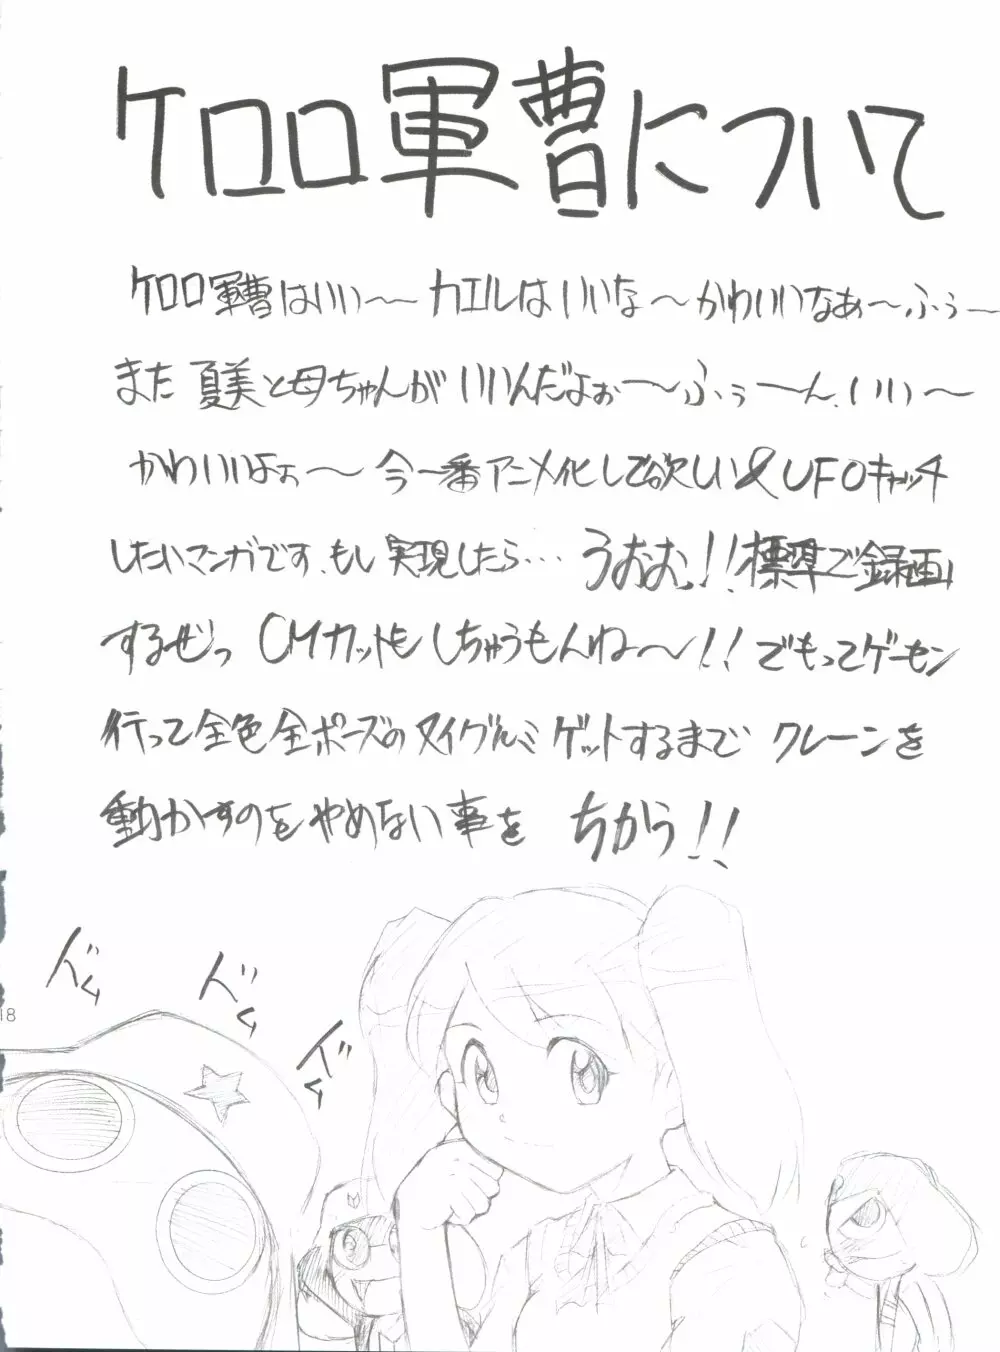 ケロロ軍曹について
ケロロ軍曹はいい〜 カエルはいいな〜かわいいなぁ〜ふぅ〜
また夏美と母ちゃんがいいんだよぉ〜ふぅ〜ん、いい〜
かわいいよぉ〜 今一番アニメ化して欲しい&UFOキャッチ
したいマンガです、もし実現したら… うおおっ!!標準で録画
するぜっ CMカットもしちゃうもんね〜!! でもってゲーセン
行って全色全ポーズのヌイグルミゲットするまで クレーンを
動かすのをやめない事を ちかう!!
ドム
ドム
ドム
18